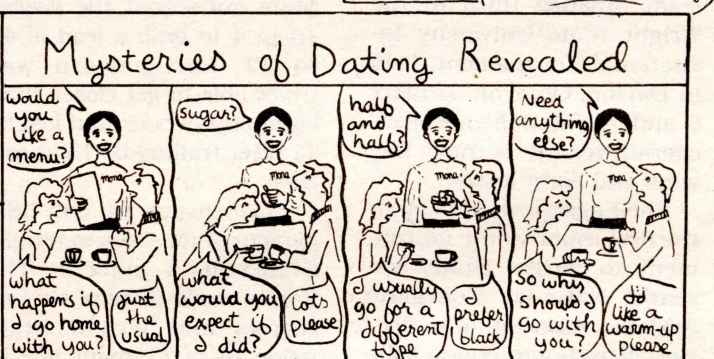 Mysteries Of Dating Revealed
would
you
like a
menu?
mona
what
happens if
I go home
with you?
Just
the
usual
Sugar?
mona
what
would you
expect if
I did?
lots
please
half
and
half?
mona
I usually
go for a
different
type
I
prefer
black
Need
anything
else?
mona
So why
should I
go with
you?
I'd
like a
warm-up
please